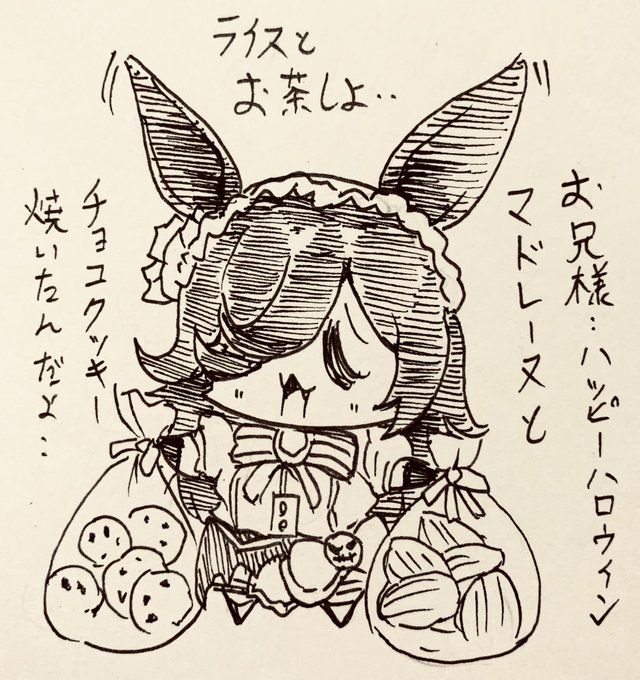 ライスと
お茶しよ‥
お兄様‥ハッピーハロウィン
マドレーヌと
チョコクッキー
焼いたんだよ‥